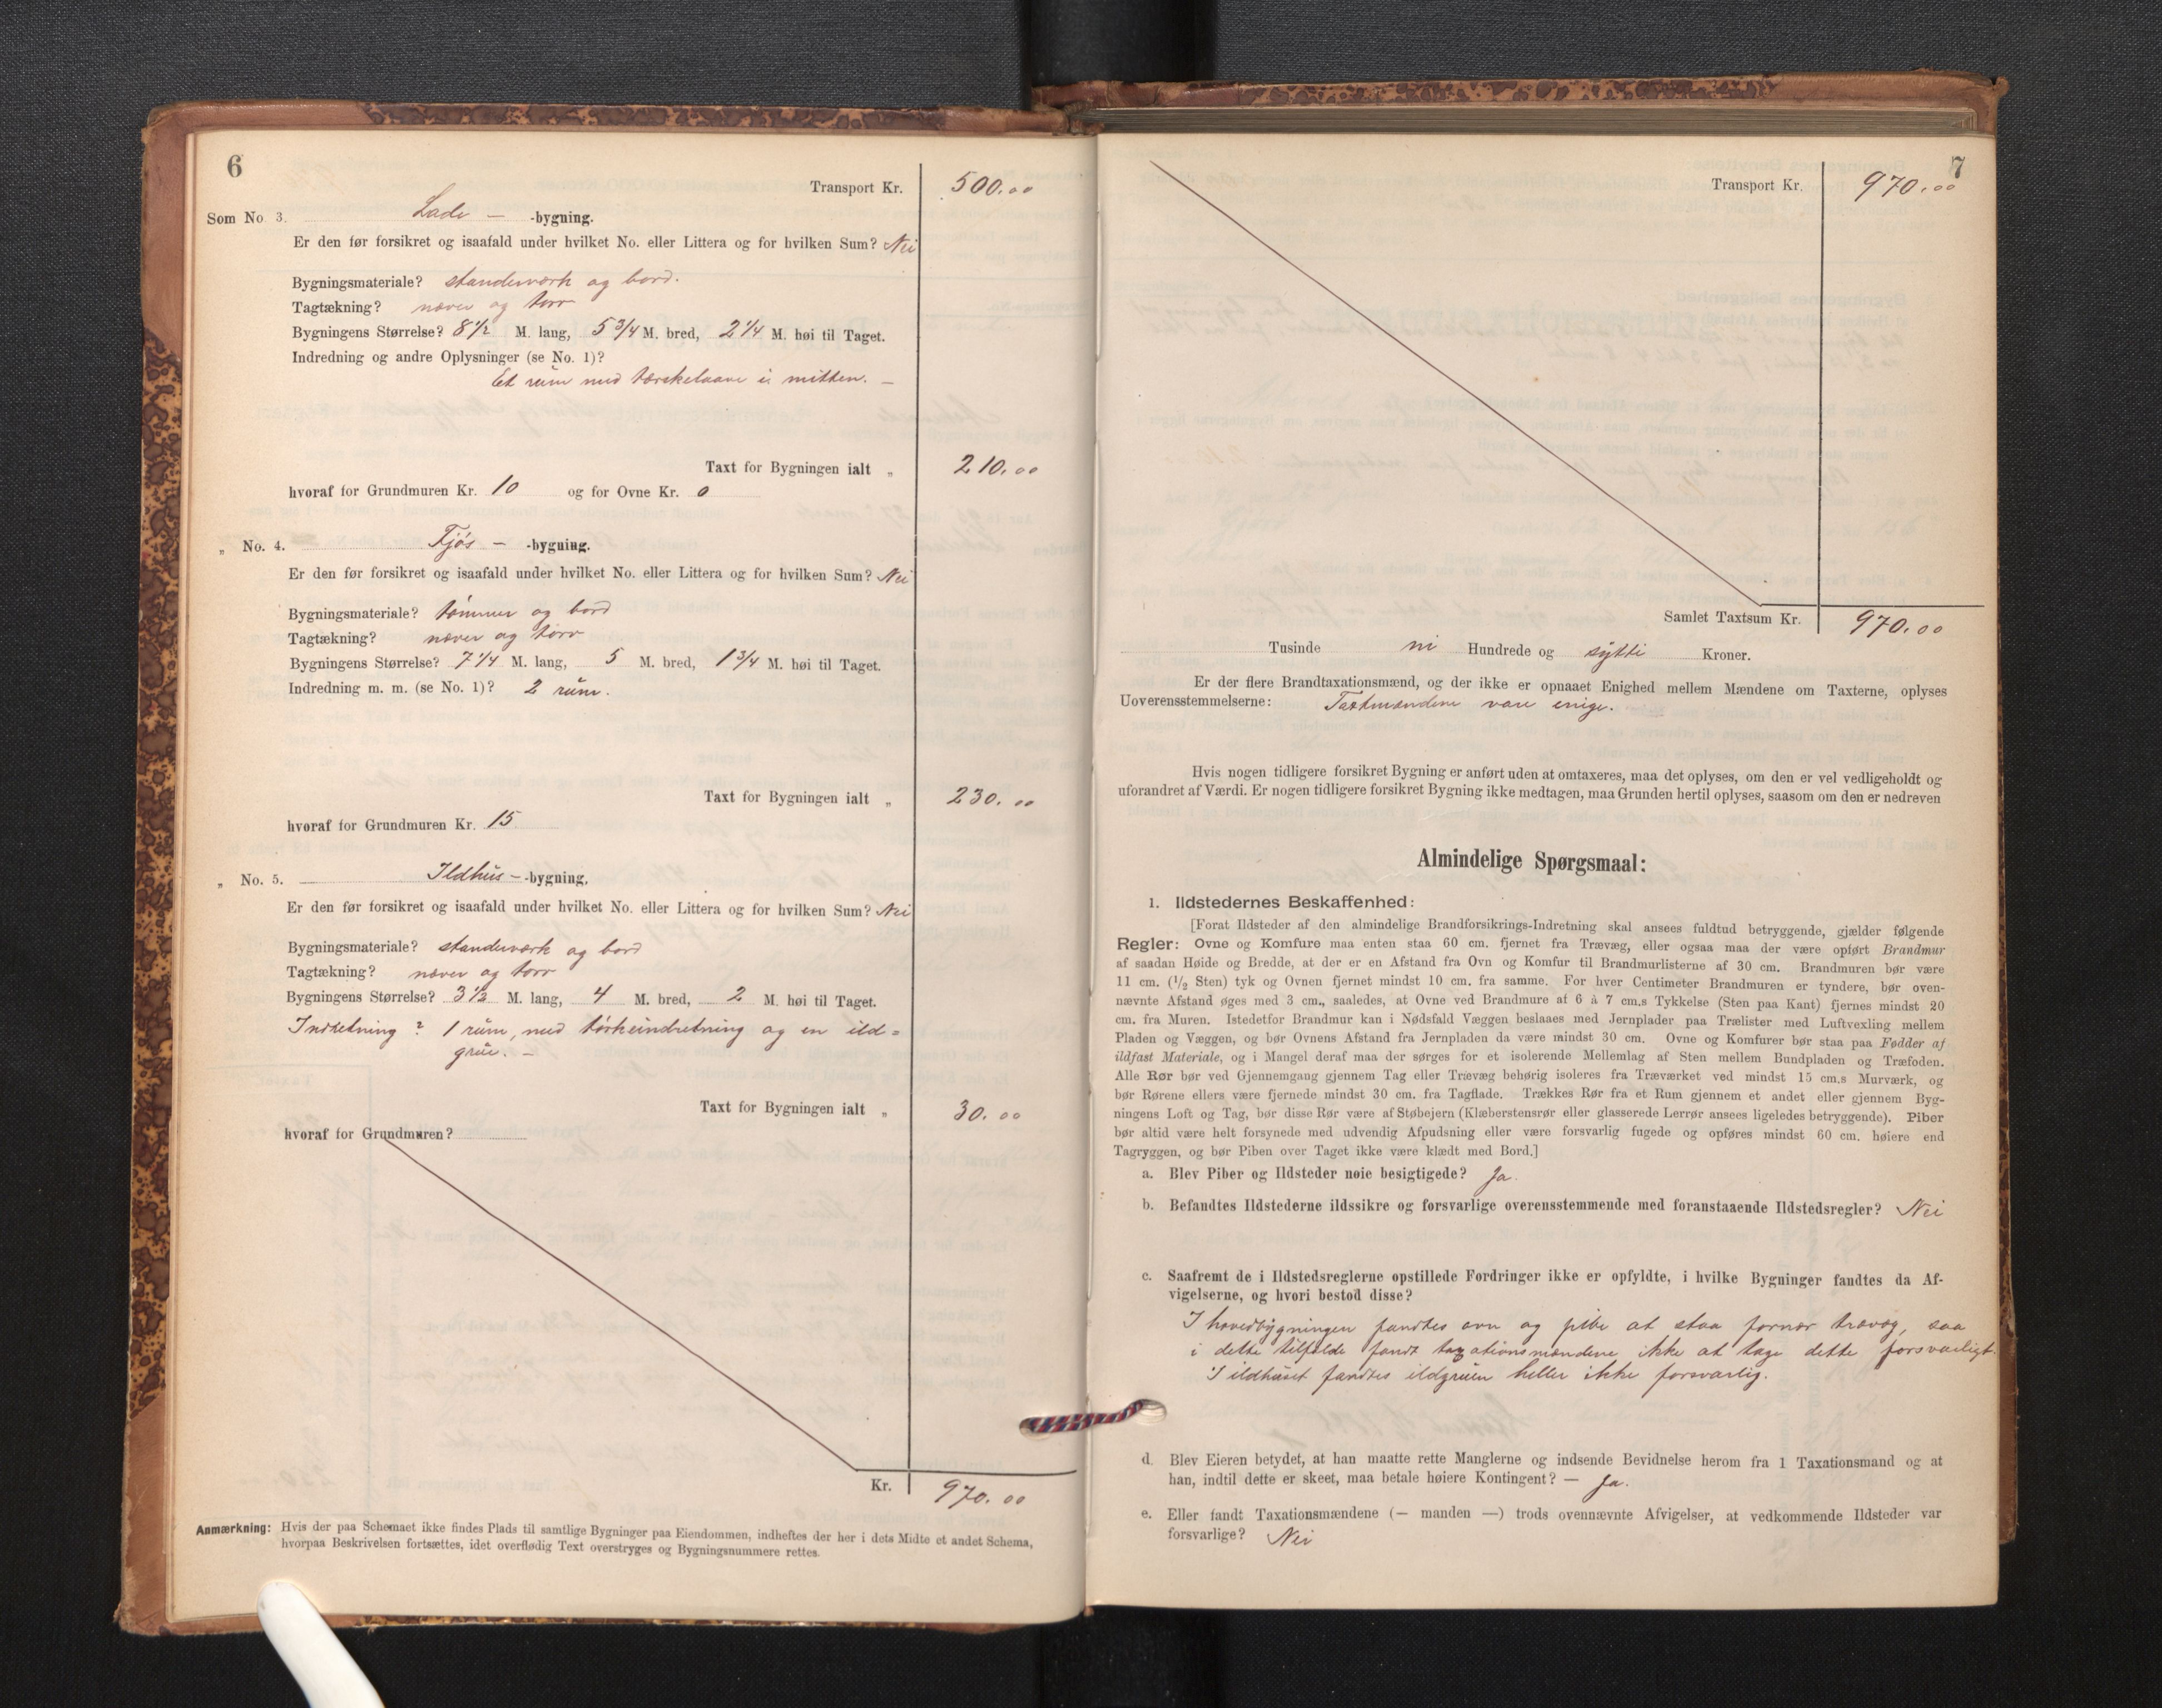 6
Transport Kr. 500.00
Som No 3. Lade – -bygning.
Er den før forsikret og isaafald under hvilket No. eller Littera og for hvilken Sum? Nei
Bygningsmateriale? standerværk og bord.
Tagtækning? næver og torv
Bygningens Størrelse? 8 1/2 M. lang, 5 3/4 M. bred, 2 1/4 M. høi til Taget.
Indredning og andre Oplysninger (se No. 1)?
Et rùm med tærskelaave i mitten. –
Taxt for Bygningen ialt „ 210.00
hvoraf for Grundmuren Kr. 10 og for Ovne Kr. 0
„ No. 4. Fjøs – -bygning.
Er den før forsikret og isaafald under hvilket No. eller Littera og for hvilken Sum? Nei
Bygningsmateriale? tømmer og bord
Tagtækning? næver og torv
Bygningens Størrelse? 7 1/4 M. lang, 5 M. bred, 1 3/4 M. høi til Taget.
Indredning m. m. (se No. 1)? 2 rùm.
Taxt for Bygningen ialt „ 230.00
hvoraf for Grundmuren Kr. 15
„ No. 5. Ildhùs – -bygning.
Er den før forsikret og isaafald under hvilket No. eller Littera og for hvilken Sum? Nei
Bygningsmateriale? standerværk og bord
Tagtækning? næver og torv
Bygningens Størrelse? 3 1/2 M. lang, 4 M. bred, 2 M. høi til Taget.
Indretning? 1 rùm, med tørkeindretning og en ild=
grùe. –
Taxt for Bygningen ialt „ 30.00
hvoraf for Grundmuren?
Kr. 970.00
Anmærkning: Hvis der paa Schemaet ikke findes Plads til samtlige Bygninger paa Eiendommen, indheftes der her i dets Midte et andet Schema,
hvorpaa Beskrivelsen fortsættes, idet overflødig Text overstryges og Bygningsnummere rettes.
7
Transport Kr. 970.00
Samlet Taxtsum Kr. 970.00
Tusinde ni Hundrede og sÿtti Kroner.
Er der flere Brandtaxationsmænd, og der ikke er opnaaet Enighed mellem Mændene om Taxterne, oplyses
Uoverensstemmelserne: Taxtmændene vare enige.
Hvis nogen tidligere forsikret Bygning er anført uden at omtaxeres, maa det oplyses, om den er vel vedligeholdt og
uforandret af Værdi. Er nogen tidligere forsikret Bygning ikke medtagen, maa Grunden hertil oplyses, saasom om den er nedreven
Almindelige Spørgsmaal:
1. Ildstedernes Beskaffenhed:
[Forat Ildsteder af den almindelige Brandforsikrings-Indretning skal ansees fuldtud betryggende, gjælder følgende
Regler: Ovne og Komfure maa enten staa 60 cm. fjernet fra Trævæg, eller ogsaa maa der være opført Brandmur
af saadan Høide og Bredde, at der er en Afstand fra Ovn og Komfur til Brandmurlisterne af 30 cm. Brandmuren bør være
11 cm. (1/2 Sten) tyk og Ovnen fjernet mindst 10 cm. fra samme. For hver Centimeter Brandmuren er tyndere, bør oven-
nævnte Afstand øges med 3 cm., saaledes, at Ovne ved Brandmure af 6 à 7 cm.s Tykkelse (Sten paa Kant) fjernes mindst 20
cm. fra Muren. Istedetfor Brandmur kan i Nødsfald Væggen beslaaes med Jernplader paa Trælister med Luftvexling mellem
Pladen og Væggen, og bør Ovnens Afstand fra Jernpladen da være mindst 30 cm. Ovne og Komfurer bør staa paa Fødder af
ildfast Materiale, og i Mangel deraf maa der sørges for et isolerende Mellemlag af Sten mellem Bundpladen og Træfoden.
Alle Rør bør ved Gjennemgang gjennem Tag eller Trævæg behørig isoleres fra Træværket ved mindst 15 cm.s Murværk, og
bør Rørene ellers være fjernede mindst 30 cm. fra Tagflade. Trækkes Rør fra et Rum gjennem et andet eller gjennem Byg-
ningens Loft og Tag, bør disse Rør være af Støbejern (Klæberstensrør eller glasserede Lerrør ansees ligeledes betryggende). Piber
bør altid være helt forsynede med udvendig Afpudsning eller være forsvarlig fugede og opføres mindst 60 cm. høiere end
Tagryggen, og bør Piben over Taget ikke være klædt med Bord.]
a. Blev Piber og Ildsteder nøie besigtigede? Ja.
b. Befandtes Ildstederne ildssikre og forsvarlige overensstemmende med foranstaaende Ildstedsregler? Nei
c. Saafremt de i Ildstedsreglerne opstillede Fordringer ikke er opfyldte, i hvilke Bygninger fandtes da Af-
vigelserne, og hvori bestod disse?
I hovedbÿgningen fandtes ovn og pibe at staa fornær trævæg, saa
i dette tilfælde fandt taxationsmændene ikke at tage dette forsvarligt.
I ildhùset fandtes ildgrùen heller ikke forsvarlig.
d. Blev Eieren betydet, at han maatte rette Manglerne og indsende Bevidnelse herom fra 1 Taxationsmand og at
han, indtil dette er skeet, maa betale høiere Kontingent? — Ja.
e. Eller fandt Taxationsmændene (— manden —) trods ovennævnte Afvigelser, at vedkommende Ildsteder var
forsvarlige? Nei